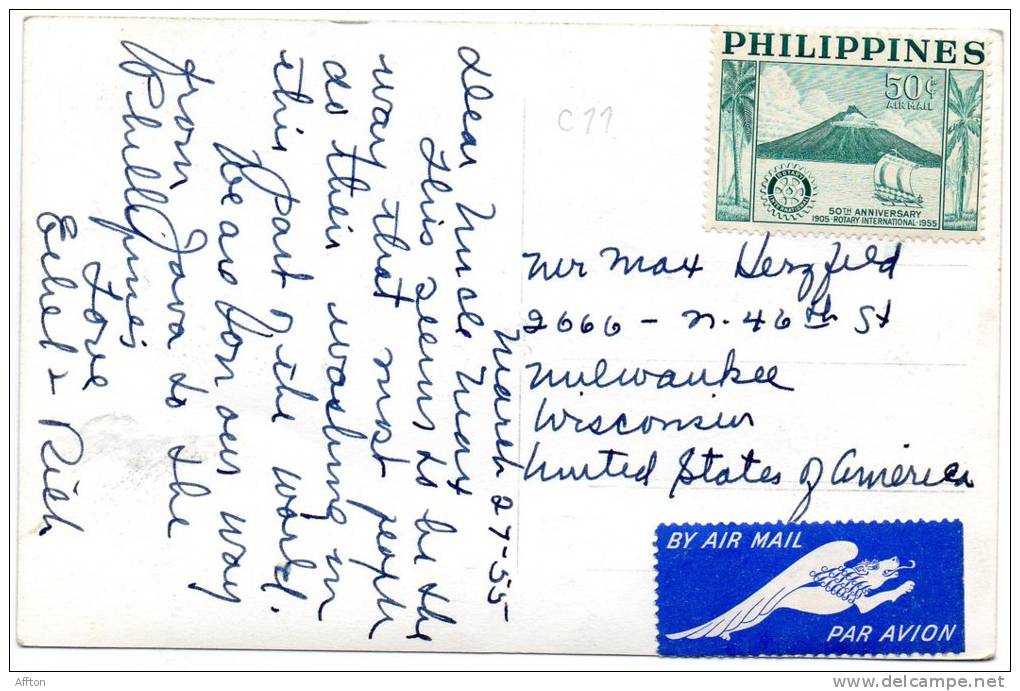 March 27-55
Dear Uncle Max
This seems to be the
way that most people
do their washing in
this part of the world.
We are on our way
from Java to the
Phillipines
Love
Ethel & Rich
C11
PHILIPPINES
50¢
AIR MAIL
ROTARY
INTERNATIONAL
50TH ANNIVERSARY
1905·ROTARY INTERNATIONAL·1955
Mr Max Herzfeld
2666 - N. 46th St
Milwaukee
Wisconsin
United States of America
BY AIR MAIL
PAR AVION
Affton
www.delcampe.net